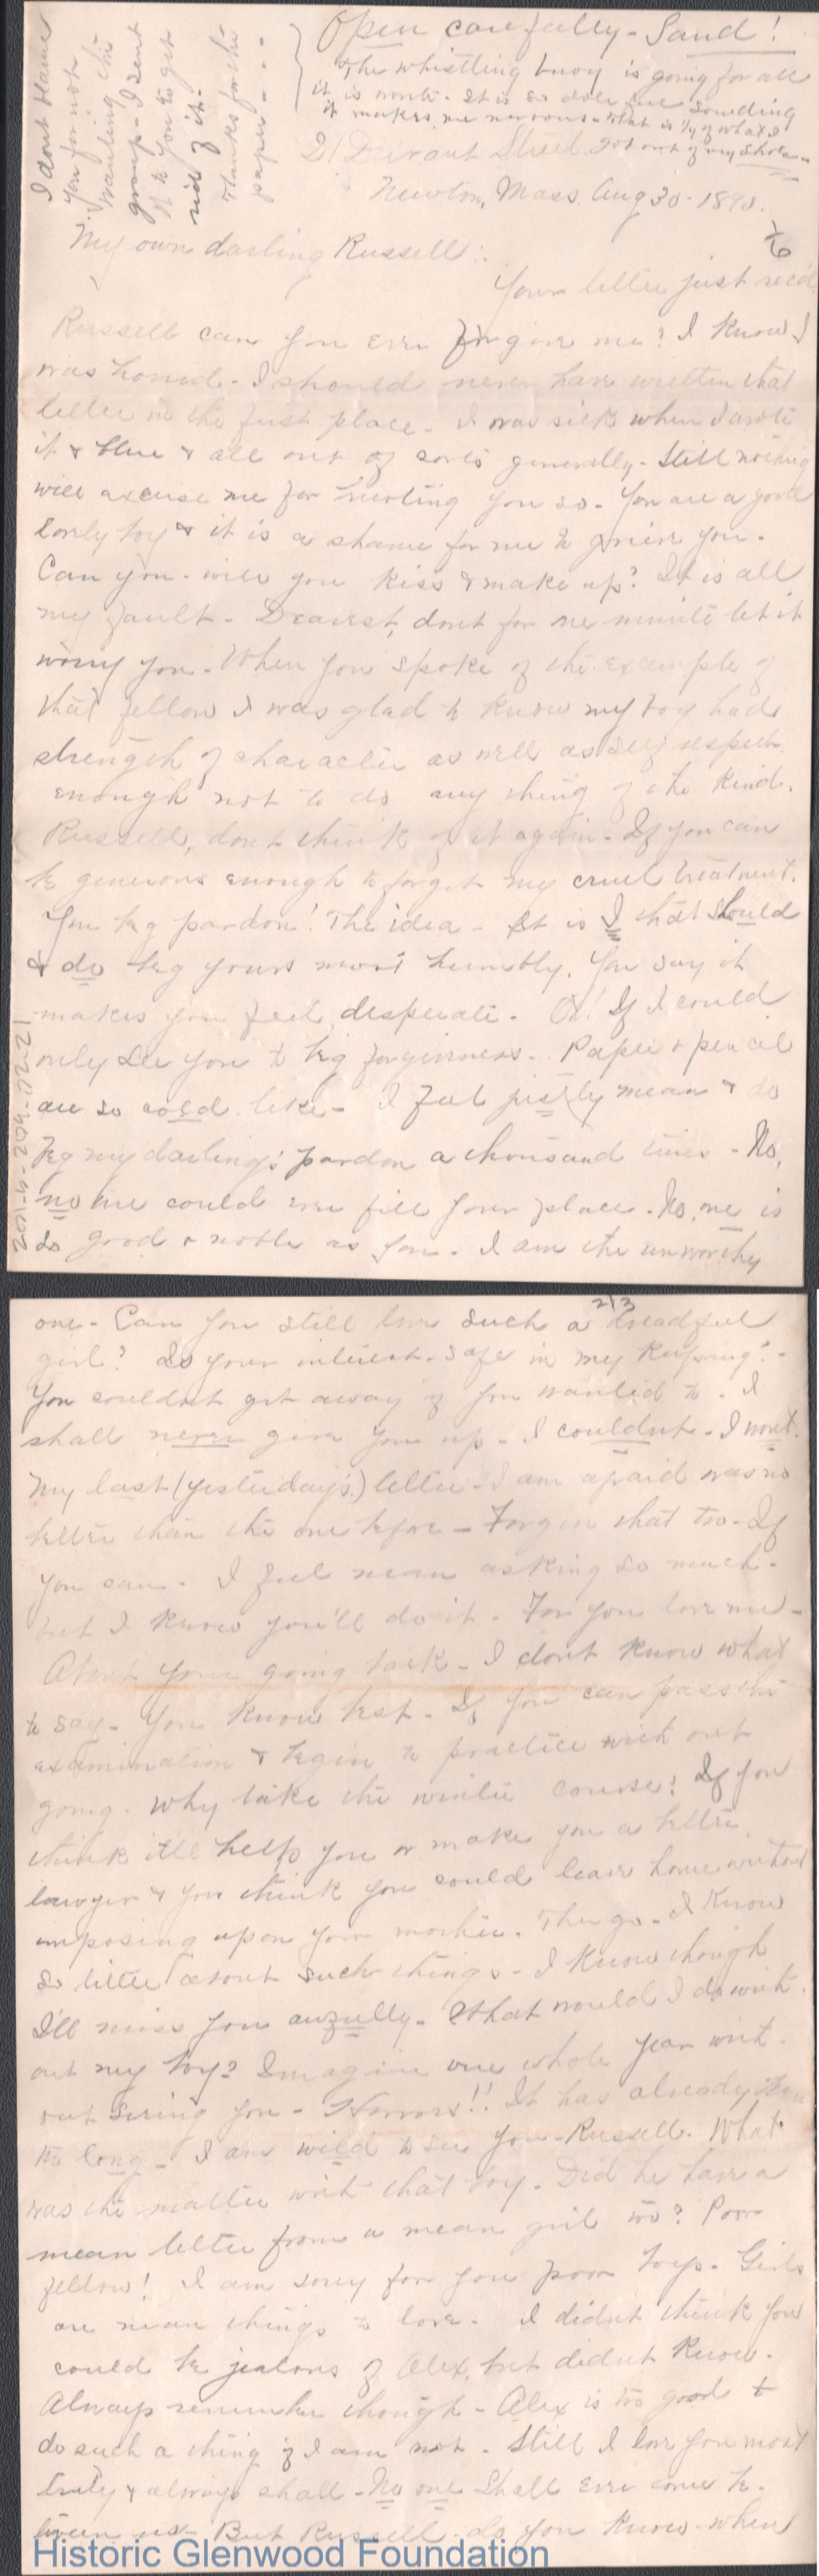 Open carefully - Sand!
The whistling buoy is going for all
it is worth. It is so doleful sounding
it makes me nervous - That is 1/4 of what I
got out of my shoe -
I dont blame
you for not
wanting the
group - I sent
it to you to get
rid of it.
Thanks for the
paper - - -
21 Durant Street.
Newton, Mass. Aug 30 - 1890.
My own darling Russell:
Your letter just rec'd
Russell can you ever forgive me? I know I
was horrid. I should never have written that
letter in the first place. I was sick when I wrote
it & blue & all out of sorts generally - Still nothing
will excuse me for hurting you so. You are a good
lovely boy & it is a shame for me to grieve you.
Can you - will you kiss & make up? It is all
my fault - Dearest, dont for one minute let it
worry you. When you spoke of the example of
that fellow I was glad to know my boy had
strength of character as well as self respect
enough not to do any thing of the kind.
Russell, dont think of it again. If you can
be generous enough to forget my cruel treatment.
You beg pardon! The idea - It is I that should
& do beg yours most humbly. You say it
makes you feel desperate. O! If I could
only see you to beg forgiveness. Paper & pencil
are so cold like - I feel justly mean & do
beg my darling's pardon a thousand times - No,
no one could ever fill your place. No one is
so good & noble as you. I am the unworthy
2014-209-1721
2/3
one - Can you still love such a dreadful
girl? Is your interest safe in my keeping? -
You couldnt get away if you wanted to - I
shall never give you up - I couldnt - I wont.
My last (yesterday's) letter - I am afraid was no
better than the one before - Forgive that too - If
you can. I feel mean asking so much -
but I know you'll do it. For you love me -
About your going back - I dont know what
to say - You know best - If you can pass the
examination & begin to practice with out
going. Why take the winter course? If you
think it'll help you or make you a better
lawyer & you think you could leave home without
imposing upon your mother. Then go - I know
so little about such things - I know though
I'll miss you awfully - What would I do with
out my boy? Imagine one whole year with-
out seeing you - Horrors!! It has already been
too long - I am wild to see you - Russell. What
was the matter with that boy - Did he have a
mean letter from a mean girl too? Poor
fellow! I am sorry for you poor boys - Girls
are mean things to love - I didnt think you
could be jealous of Alex, but didnt know.
Always remember though - Alex is too good to
do such a thing if I am not - Still I love you most
truly & always shall - No one shall ever come be-
tween us - But Russell - do you know - when
Historic Glenwood Foundation